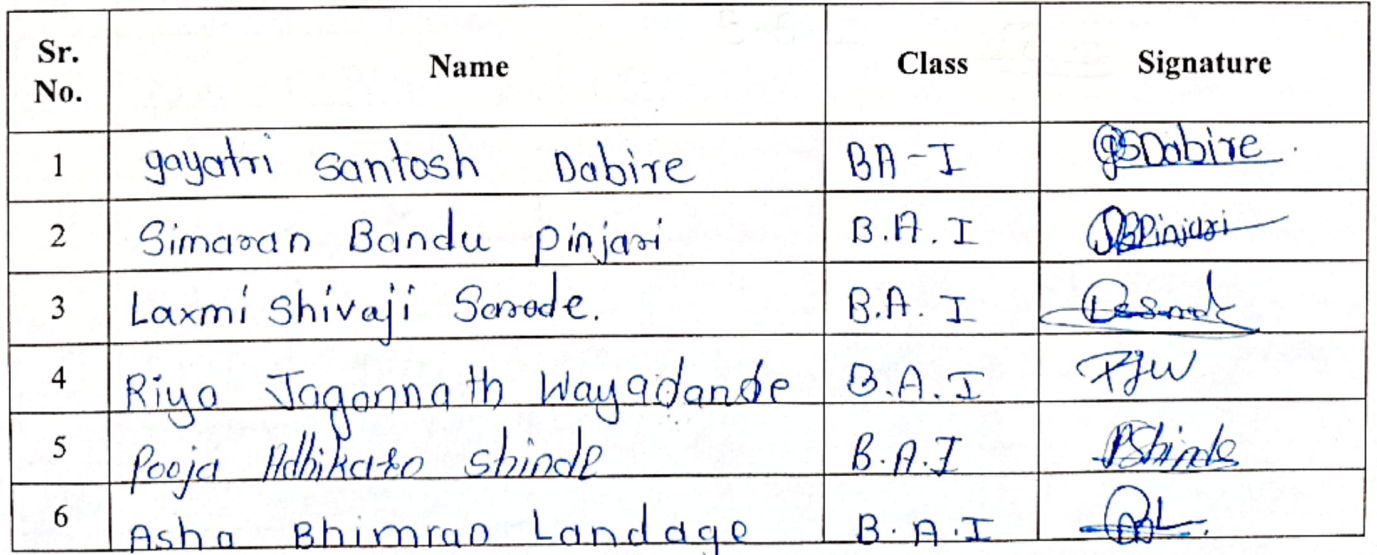 Sr. No. Name Class Signature
1 gayatri santosh Dabire BA-I GSDabire
2 Simaran Bandu pinjari B.A.I SBPinjari
3 Laxmi Shivaji Sarode. B.A.I
4 Riya Jagannath Wayadande B.A.I RJW
5 Pooja Adhikrao shinde B.A.I PShinde
6 Asha Bhimrao Landage B.A.I